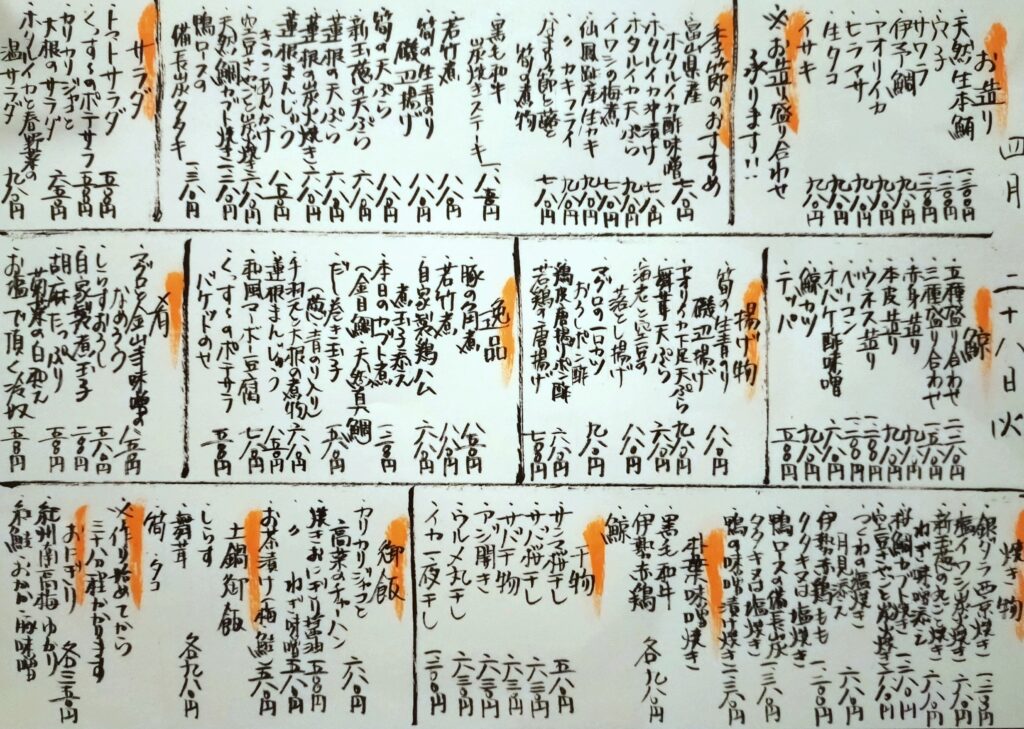 四月二十八日火
お造り
・天然生本鮪 一三〇〇円
・穴子 一二〇〇円
・サワラ 一一〇〇円
・伊予鯛 九八〇円
・アオリイカ 九八〇円
・ヒラマサ 九八〇円
・生タコ 九八〇円
・イサキ 九八〇円
※お造り盛り合わせ
承ります!!
本日のおすすめ
富山県産
・ホタルイカ酢味噌 七八〇円
・ホタルイカ沖漬け 七八〇円
・ホタルイカ天ぷら 九八〇円
・イワシの梅煮
・仙鳳趾産生カキ 九八〇円
・〃 カキフライ 九八〇円
・なまり節と
筍の煮物 七八〇円
・黒毛和牛
炭焼きステーキ 一八五〇円
・若竹煮 八八〇円
・筍の生青のり
磯辺揚げ 八八〇円
・筍の天ぷら 八八〇円
・新玉葱の天ぷら 六八〇円
・蓮根の天ぷら
・蓮根の炭火焼き
・蓮根まんじゅう
きのこあんかけ 八五〇円
・空豆さやごと炭焼き 六八〇円
・天然鯛カブト焼き
・鴨ロースの
備長炭タタキ 一三八〇円
サラダ
・トマトサラダ 五八〇円
・くんすーのポテサラ 五八〇円
・カリカリジャコと
大根のサラダ 六五〇円
・ホタルイカと春野菜の
温サラダ 九八〇円
鯨
・五種盛り合わせ
・三種盛り合わせ
・赤身造り
・本皮造り
・ウネス造り
・オバケ酢味噌
・ベーコン
・鯨カツ 九八〇円
・テッパ
揚げ物
・筍の生青のり
磯辺揚げ 八八〇円
・アオリイカ下足天ぷら 九八〇円
・舞茸天ぷら 六八〇円
・海老と空豆の
落とし揚げ 八八〇円
・マグロの一口カツ
おろしポン酢 九八〇円
・鶏皮唐揚げポン酢 六八〇円
・若鶏の唐揚げ 七八〇円
逸品
・豚の角煮 八五〇円
・若竹煮 八八〇円
・自家製鶏ハム
煮玉子添え 六八〇円
・本日のカブト煮
(金目鯛、天然真鯛) 一二〇〇円
・だし巻き玉子
(葱、青のり入り) 五八〇円
・手羽元と大根の煮物 六八〇円
・蓮根まんじゅう 八五〇円
・和風マーボー豆腐 七八〇円
・くんすーのポテサラ
バケットのせ 五八〇円
肴
・マグロと金山寺味噌の
なめろう 八五〇円
・しらすおろし 五八〇円
・自家製煮玉子 二八〇円
・胡麻たっぷり
菊菜の白和え 五五〇円
・お塩で頂く冷奴 五五〇円
焼き物
・銀ダラ西京焼き
・塩イワシ炭火焼き 六八〇円
・新玉葱の丸ごと焼き
ねぎ味噌添え 六八〇円
・桜鯛カブト焼き
・空豆さやごと炭焼き 六八〇円
・つくねの塩焼き
月見添え 六八〇円
・伊勢赤鶏もも
タタキ又は塩焼き 一二〇〇円
・鴨ロースの備長炭
タタキ又は塩焼き 一三八〇円
・鴨の味噌漬け焼き 一三八〇円
朴葉味噌焼き
・黒毛和牛
・伊勢赤鶏
・鯨
各九八〇円
干物
・サンマ桜干し 五八〇円
・サバ桜干し 六三〇円
・サバ干物 六三〇円
・アジ開き 六三〇円
・ウルメ丸干し 六三〇円
・イカ一夜干し 一二〇〇円
御飯
・カリカリジャコと
高菜のチャーハン 六八〇円
・焼きおにぎり醤油 五八〇円
・〃 ねぎ味噌 五八〇円
・お茶漬け梅、鮭 五八〇円
土鍋御飯
・しらす
・舞茸
・筍 ・タコ
各九八〇円
※作り始めてから
三十八分程かかります
おにぎり
・紀州南高梅・ゆかり
・紅鮭・おかか・豚味噌
各三五〇円